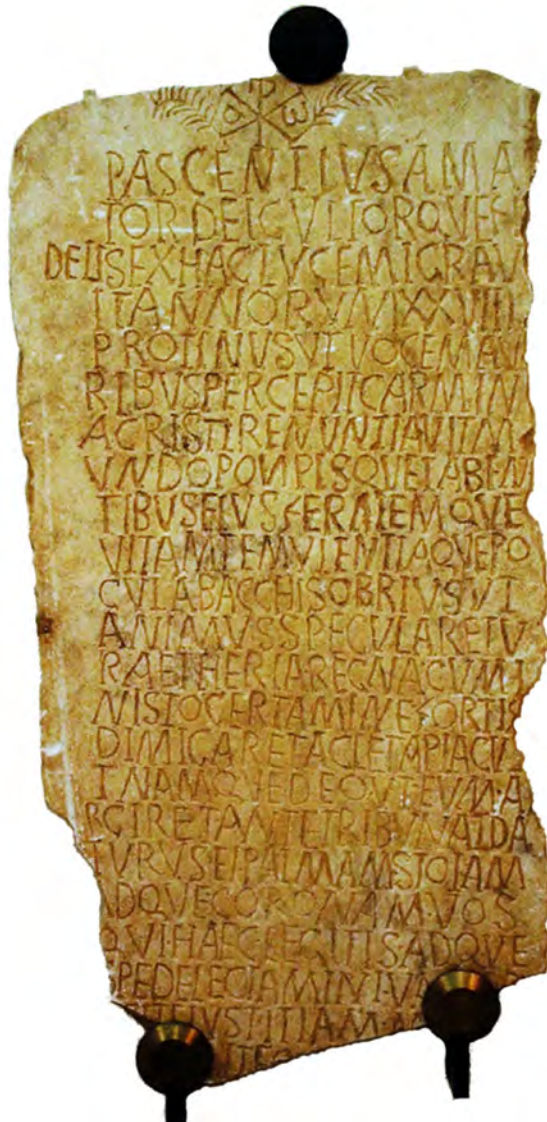 α ω
PASCENTIUSAMA
TORDEICVLTORQVEF
DELISEXHACLVCEMIGRAV
ITANNORVMXXVIIII
PROTINUSVTVOCEMAV
RIBVSPERCEPITCARMIN
ACRISTIRENUNTIAVITM
VNDOPONPISQVETABEN
TIBVSEIVSFERALEMQVE
VITAMTEMVLENTIAQVEPO
CVLABACCHISOBRIVSVT
ANIMVSSPECVLARETV
RAETHERIAREGNACVMI
NISTOCERTAMINEFORTIS
DIMICARETACLETAPLACV
ITNAMQVEDEOVTEVM·A
RCIRETANTETRIBVNALDA
TVRVSEIPALMAMSTOLAM
ADQVECORONAM·VOS
QVI·HAECLEGITISADQVE
SPEDELECTAMINI·VA
IVSTITIAM